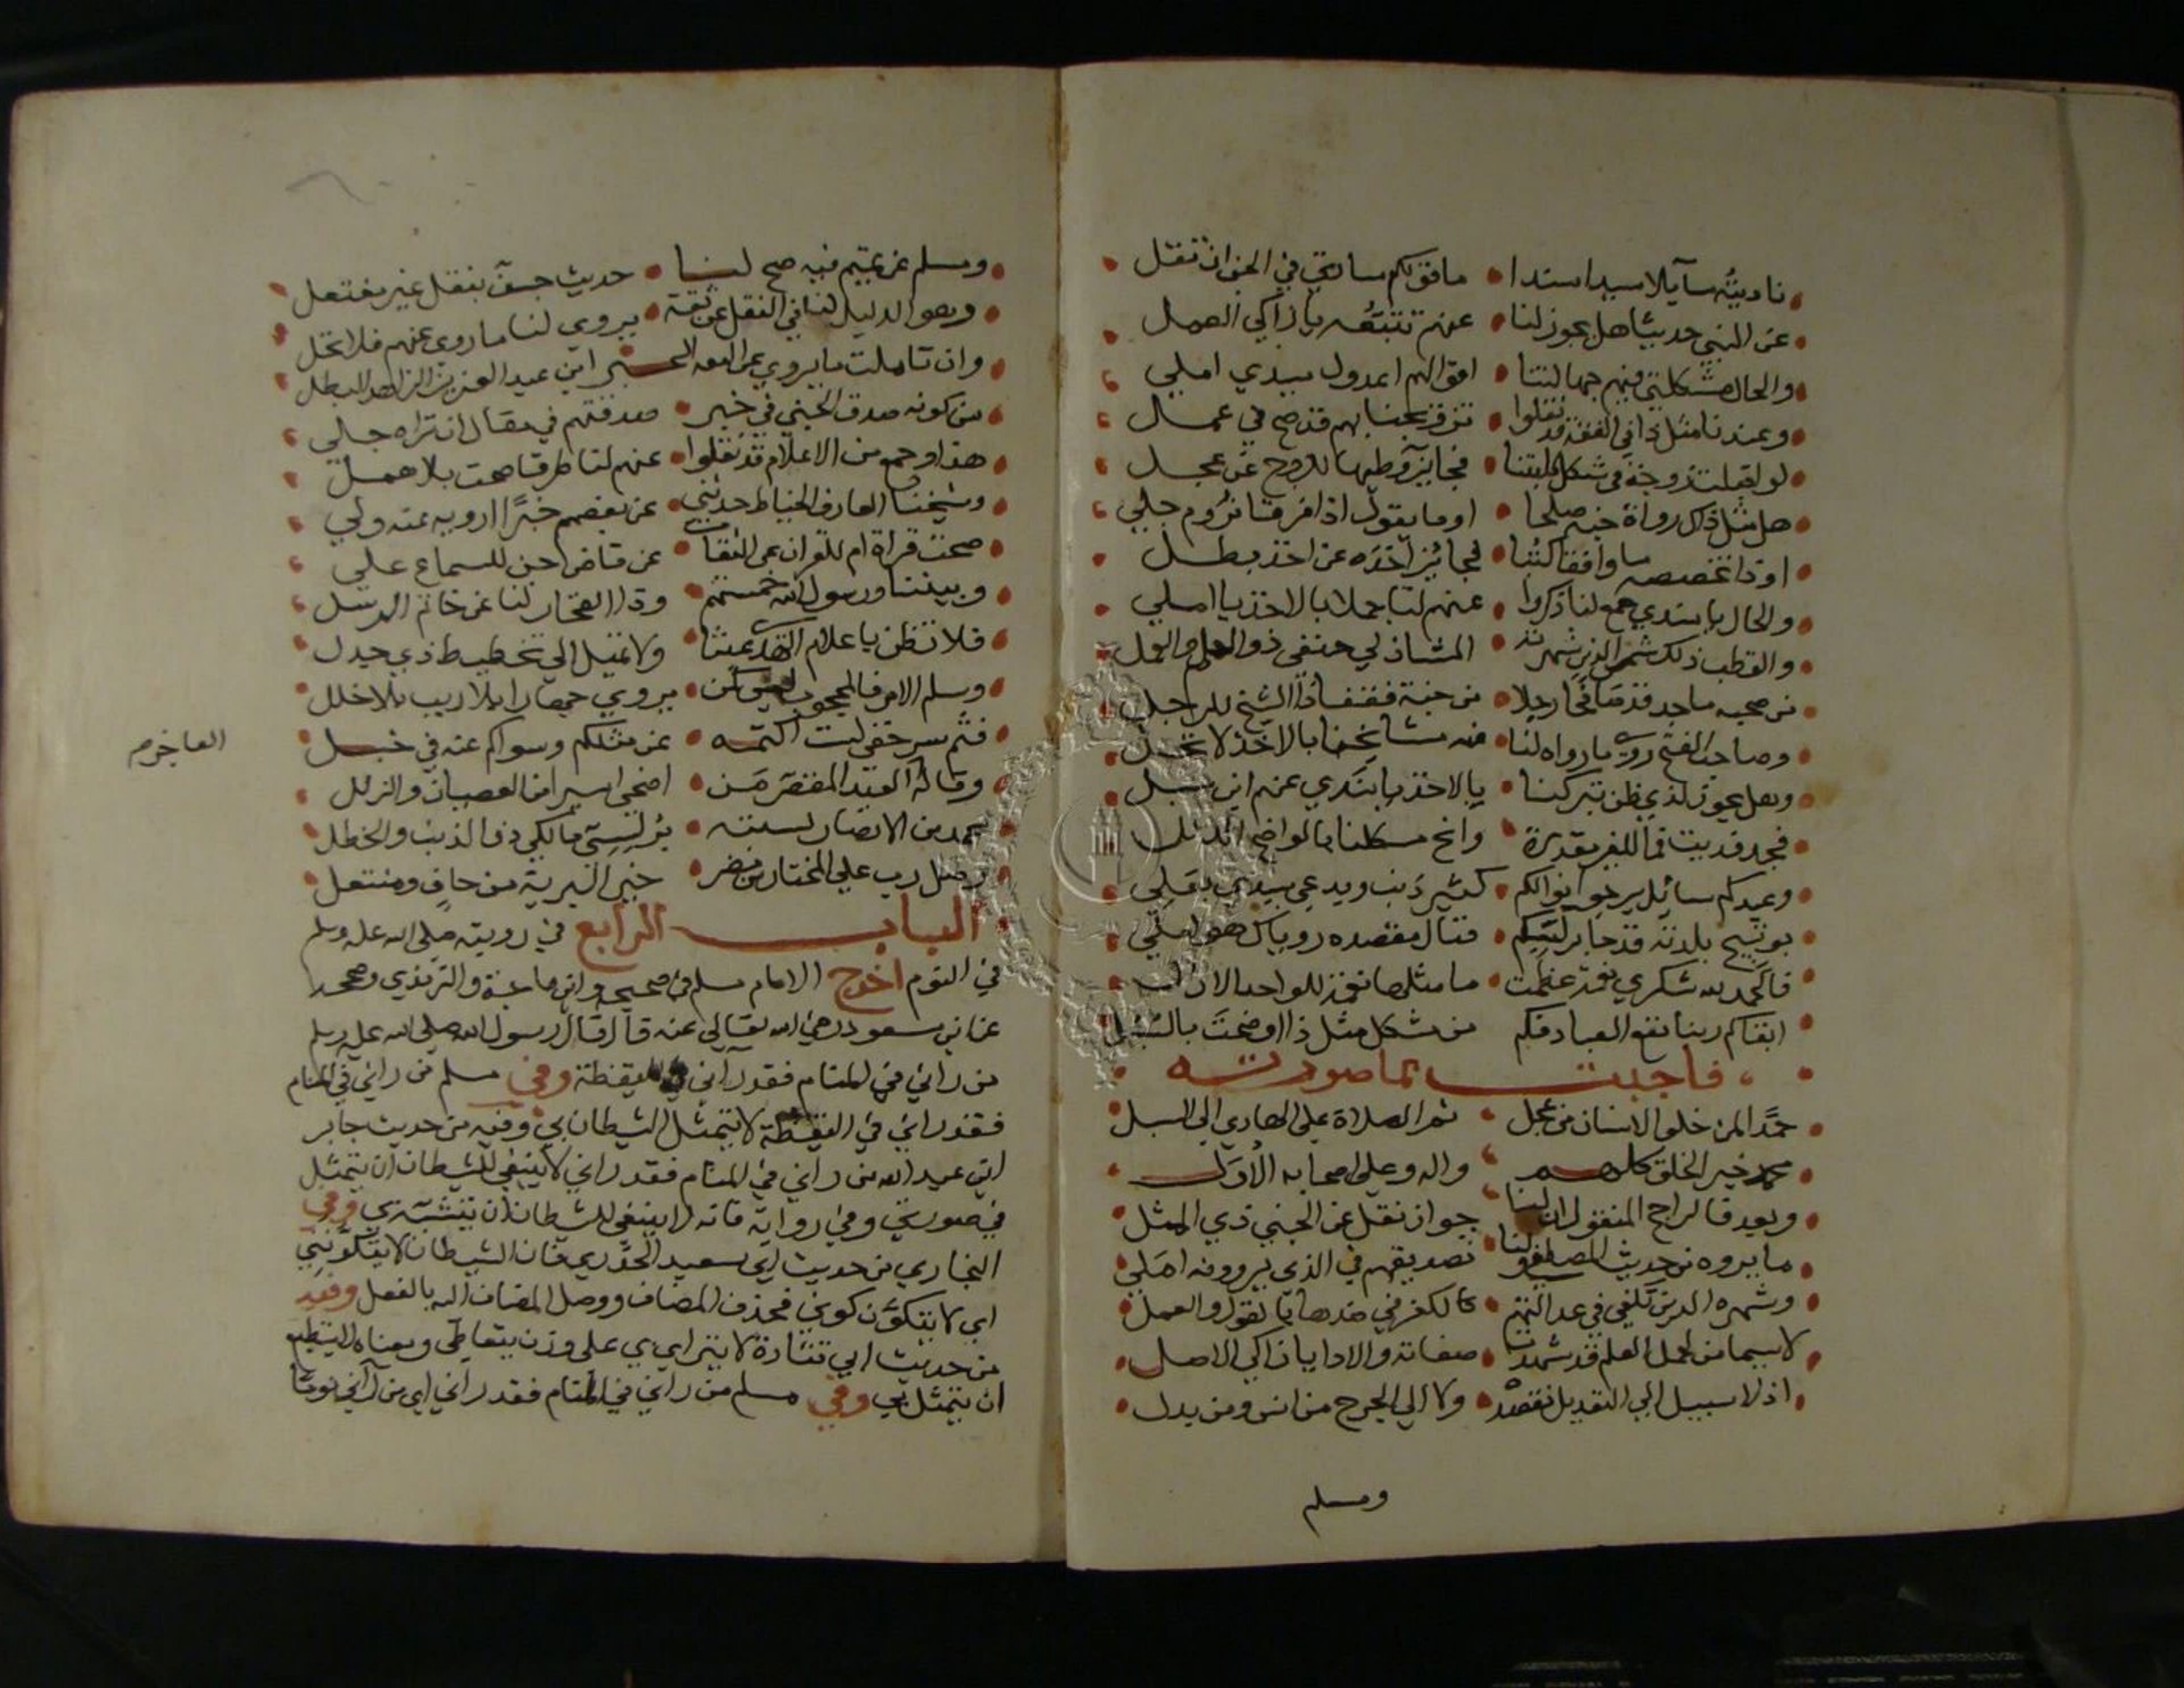 ناديته سآيلا سيدا سندا • ما قولكم سادتي في الجن ان تقل
عن النبي حديثا هل يجوز لنا • عنهم تتبعه يا زاكي العمل
والحال مشكلتي فيهم جهالتنا • اقوالهم اعدول سيدي املي
وعندنا مثل ذا في الفقه قد نقلوا • تزويجنا بهم قد صح في عمل
فجايز وطيها للزوج عن عجل
هل مثل ذاك رواة جنه صلحا • او ما يقول اذا فرقا نروم جلي
او ذا تخصصه ما وافقا كتبا • فجايز اخذه عن اخذ بطل
والحال يا سندي جمع لنا ذكروا • عنهم لنا جملا بالاخذ يا املي
والقطب ذلك شمس الدين شهرته • الشاذلي حنفي ذو العلم والعمل
من صحبه ماجد قد مات فجا رجلا • من جنة فقفا ذا الشيخ للرجل
وصاحب الفتح رويه ما رواه لنا • فيه مشايخنا بالاخذ لا تحل
وهل يجوز لذي ظن تبركنا • بالاخذ يا سندي عنهم ابن سبل
فجد فديت فما للغير مقدرة • وانح مسلكنا بالواضح الدلل
وعبدكم سائل يرجو نوالكم • كثير ذنب ويدعى سيدي بعلي
بوتيج بلدته قد جا برلسيكم • فنال مقصده روياك هو املي
فالحمد لله شكري نعمة عظمت • ما مثلها نعمة للواحد الازل
ابقاكم ربنا نفع العباد فكم من مشكل مثل ذا اوضحت بالسبل
فاجبت بما صورته
حمدا لمن خلق الانسان من عجل • ثم الصلاة على الهادي الى السبل
محمد خير الخلق كلهم • واله وعلى اصحابه الاول
وبعد فالراجح المنقول ان لنا • جواز نقل عن الجني ذي المثل
ما يروه من حديث المصطفى ولنا • تصديقهم في الذي يروونه املي
وشهره الدين تكفي في عدالتهم • كالكفر في ضدها يا تقول والعمل
لا سيما من لهل العلم قد شهدت • صفاته والادا يا زاكي الاصل
اذ لا سبيل الى التعديل نقصده • ولا الى الجرح من انس ومن بدل
ومسلم
ومسلم عن تميم فيه صح لنا • حديث جسق بنقل غير مفتعل
وهو الدليل لنا في النقل عن ثقة • يروي لنا ما روى عنهم فلا تحل
وان تاملت ما يروي عن ابن عبد العزيز الزاهد البطل
من كونه صدق الجني في خبر • صدقتهم في مقال انتراه جلي
هذا وجمع من الاعلام قد نقلوا • عنهم لنا طرقا صحت بلا همل
وشيخنا العارف الخياط حدثني • عن بعضهم خبرا ارويه عنه ولي
صحت قراة ام للقران عن الثقات • عن قاض جن للسماع علي
وبيننا ورسول الله خمستهم • وذا الفخار لنا عن خاتم الرسل
فلا تظن يا علام النهى عبثا • ولا تميل الى تخطيط ذي جدل
وسلم الامر فالمحجوب ليس كمن • يروي جهارا بلا ريب بلا خلل
فثم سر خفي لست اكتمه • عن مثلكم وسواكم عنه في خبل
وقاله العبد المفتقر من • اضحى اسير افن العصيان والزلل
العاجز صح
محمد من الانصار نسبته • برلسي مالكي ذو الذنب والخطل
وصل رب على المختار من مضر • خير البرية من حاف ومنتعل
الباب الرابع في رويته صلى الله عليه وسلم
في النوم اخرج الامام مسلم في صحيحه وابن ماجة والترمذي وصححه
عن ابن مسعود رضي الله تعالى عنه قال قال رسول الله صلى الله عليه وسلم
من راني في المنام فقد رآني في اليقظة وفي مسلم من راني في المنام
فقد راني في اليقظة لا يتمثل الشيطان بي وفيه من حديث جابر
ابن عبد الله من راني في المنام فقد راني لا ينبغي للشيطان ان يتمثل
في صورتي وفي رواية فانه لا ينبغي للشيطان ان يتشبه بي وفي
البخاري من حديث ابي سعيد الخدري فان الشيطان لا يتكونني
اي لا يتكون كوني فحذف المضاف ووصل المضاف اليه بالفعل وفيه
من حديث ابي قتادة لا يتراى بي على وزن يتعاطى ومعناه لا يستطيع
ان يتمثل بي وفي مسلم من راني في المنام فقد راني اي من رآني نوما